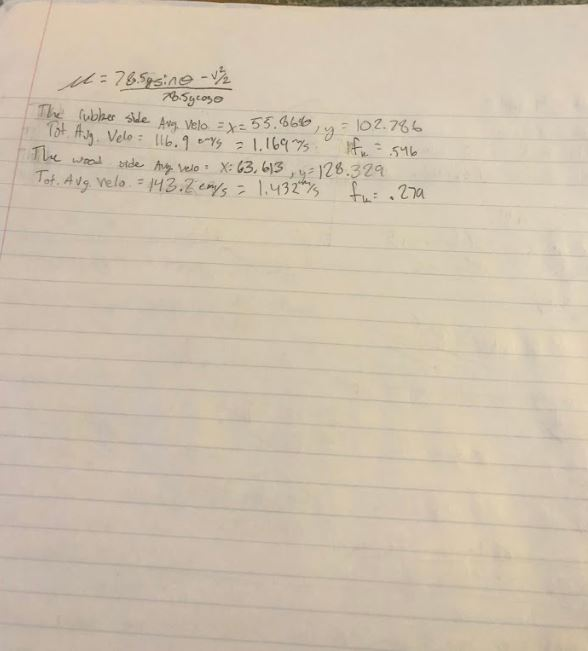 μ = 78.5g sinθ - v²/2
78.5g cosθ
The rubber side Avg. Velo = x = 55.866, y = 102.786
Tot. Avg. Velo = 116.9 cm/s = 1.169 m/s fk = .546
The wood side Avg. Velo = X: 63.613, y = 128.329
Tot. Avg. Velo. = 143.2 cm/s = 1.432 m/s fk = .279